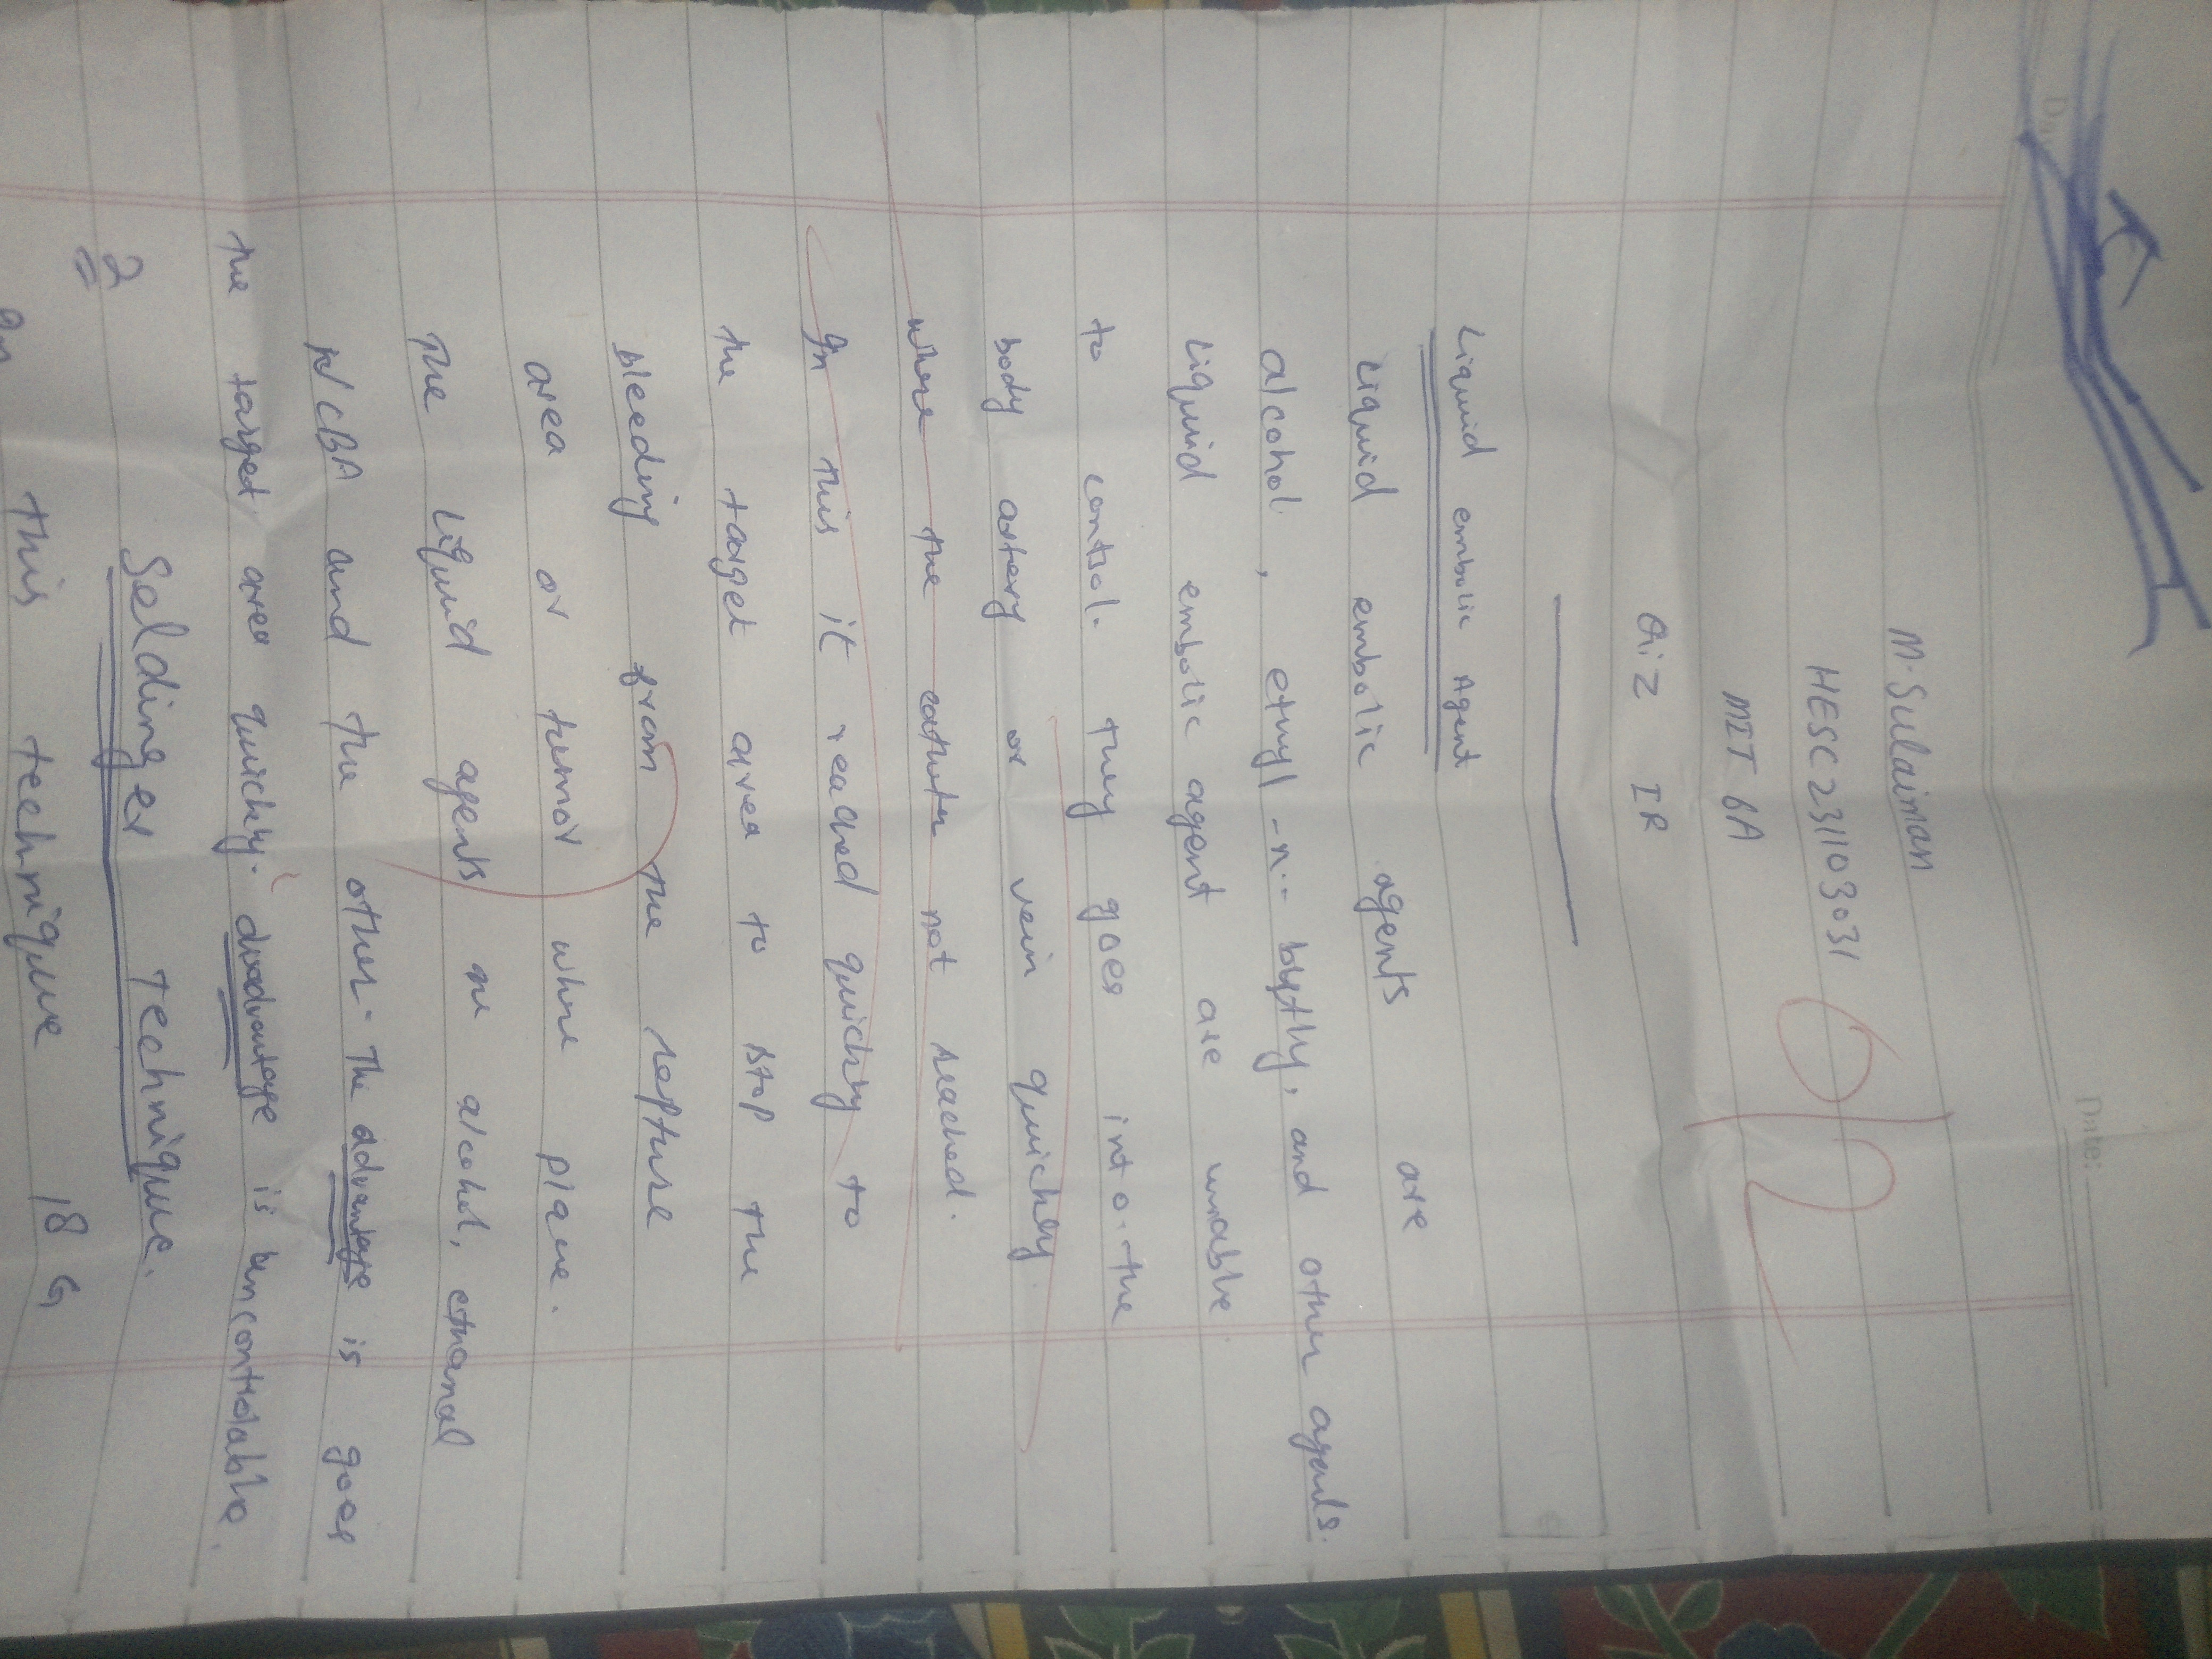 Date:
M. Sulaiman
HESC231103031
MIT 6A
Qiz IR
Liquid embolic Agent
Liquid embolic agents are
alcohol, etnyl -n-- bytly, and other agents.
Liquid embolic agent are unable
to control. they goes into the
body artery or vein quickly.
where the cathter not reached.
In this it reached quickly to
the target area to stop the
bleeding from the repture
area or tumor whre place.
The Liquid agents are alcohol, ethanal
NCBA and the other. The advantage is goes
the target area quickly. disadvantage is uncontrolable.
2 Seldinger Technique.
In this technique 18 G